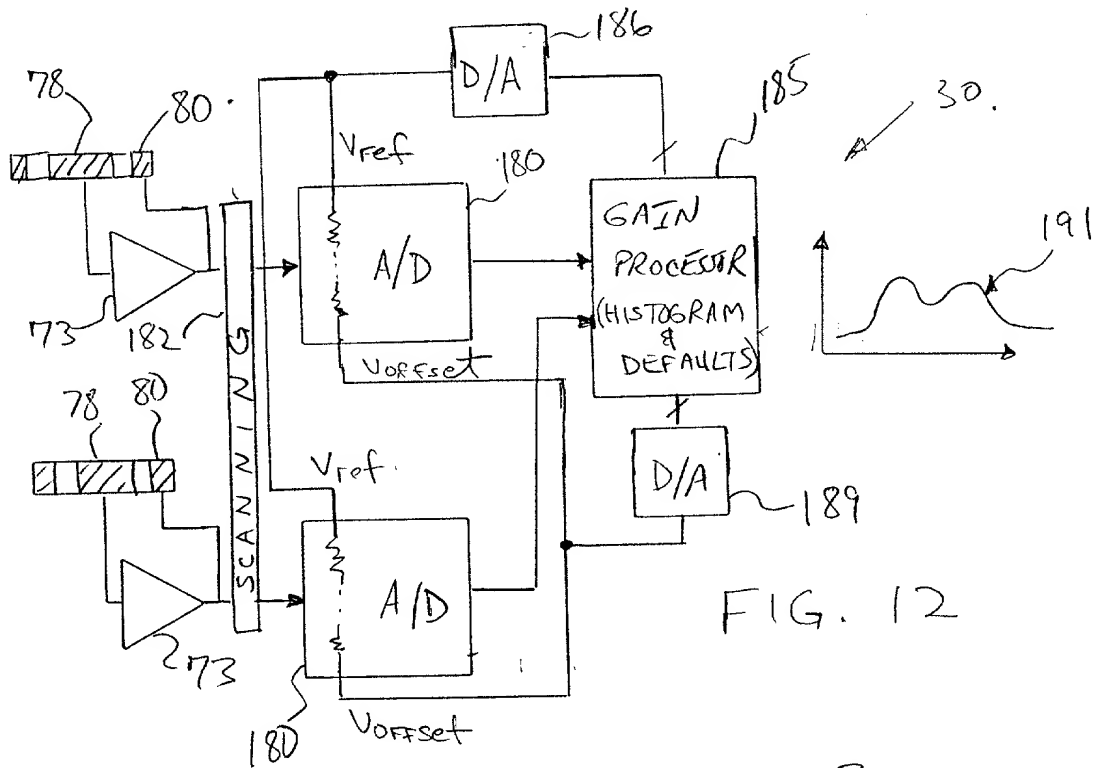 186
D/A
185
30.
78
80.
Vref
180
GAIN
PROCESSOR
(HISTOGRAM
&
DEFAULTS)
191
A/D
73
182
SCANNING
VOFFSet
78
80
Vref.
D/A
189
A/D
FIG. 12
73
180
VOFFSet